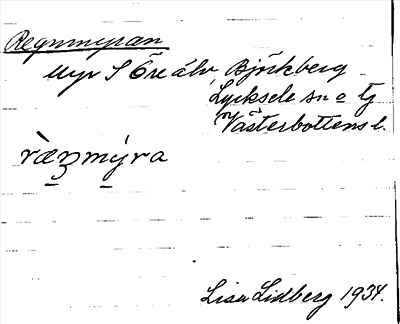 Regnmyran
Myr S Öreälv, Björkberg
Lycksele sn o tg
Västerbottens l.
ræ̀n̥mýra
Lisa Lidberg 1934.